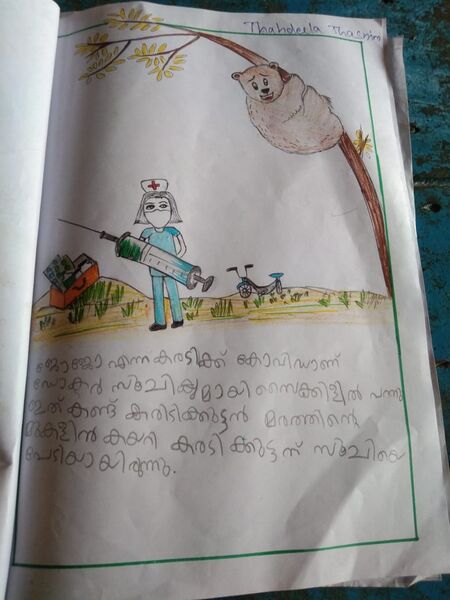 Thahdeela Thasnim
ജോജോ എന്ന കരടിക്ക് കോവിഡാണ്
ഡോക്ടർ സൂചിക്കുമായി സൈക്കിളിൽ വന്നു
ഇത് കണ്ട് കരടിക്കുട്ടൻ മരത്തിന്റെ
മുകളിൻ കയറി കരടിക്കുട്ടന് സൂചിയെ
പേടിയായിരുന്നു.